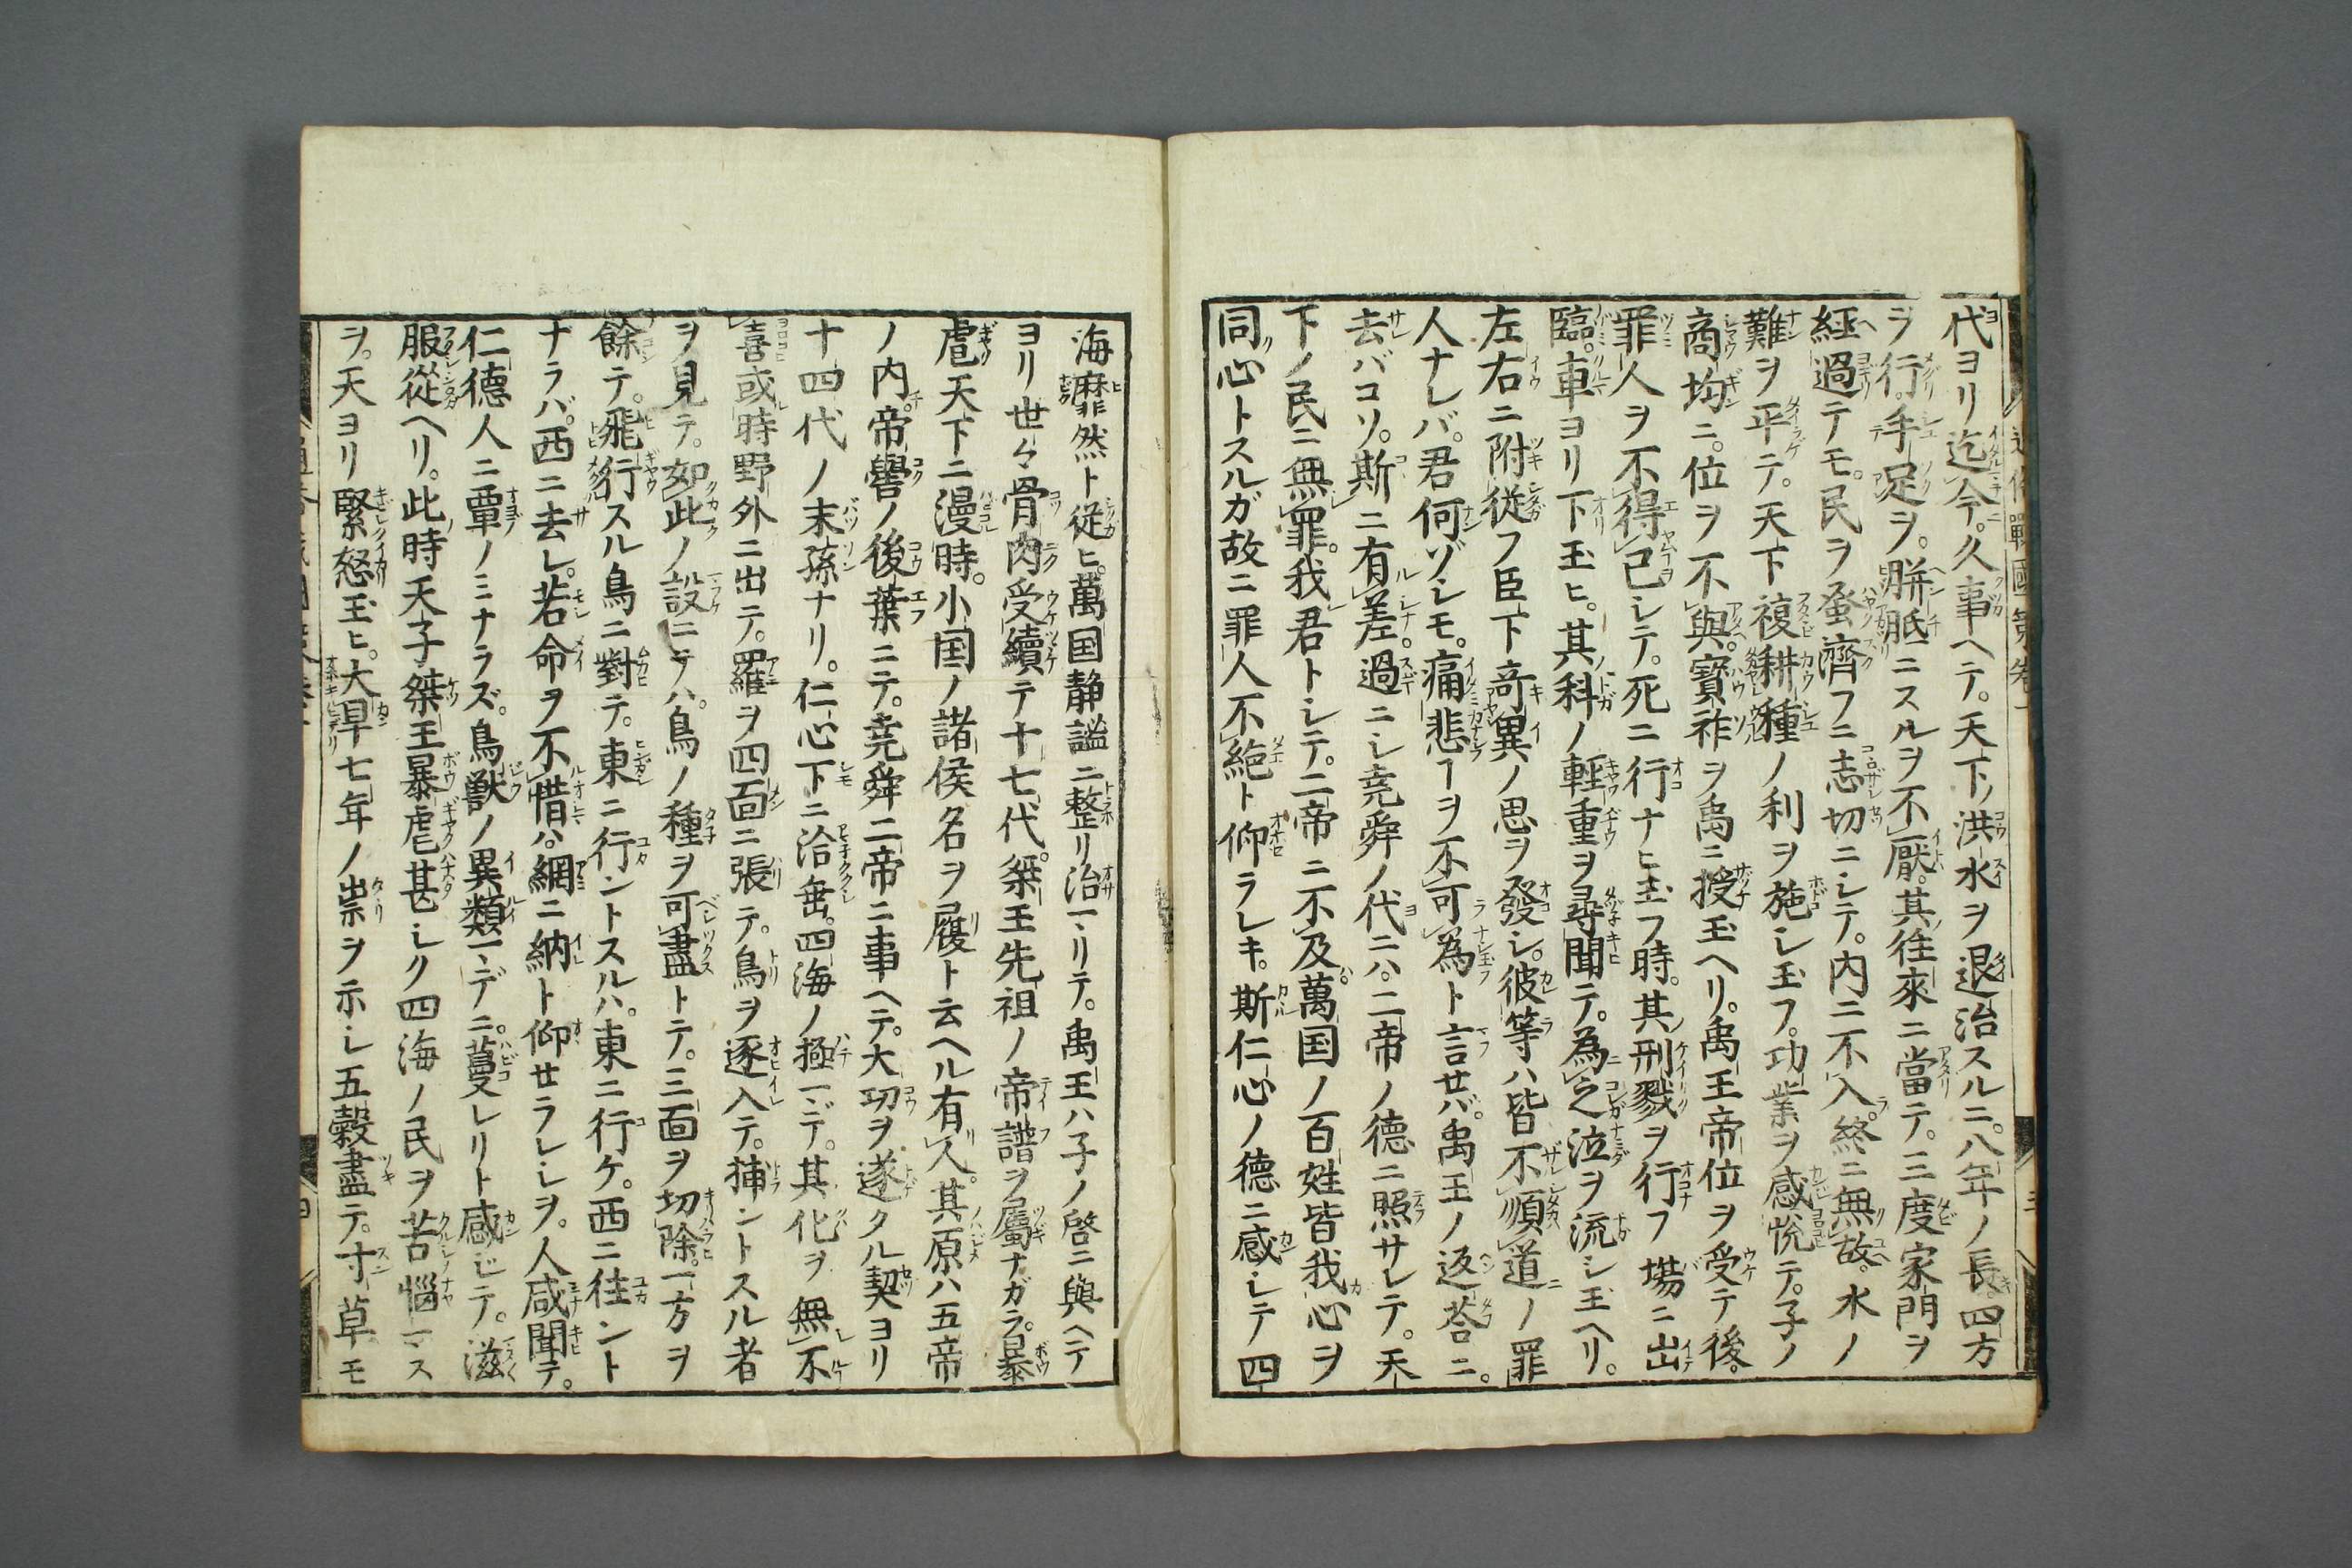 代ヨリ迄今。久事ヘテ。天下ノ洪水ヲ退治スルニ。八年ノ長。四方
ヲ行。手足ヲ。胼胝ニスルヲ不厭。其往來ニ當テ。三度家門ヲ
經過テモ。民ヲ蚤濟フニ志切ニシテ。内ニ不入。終ニ無故。水ノ
難ヲ平テ。天下複耕種ノ利ヲ施シ玉フ。功業ヲ感悦テ。子ノ
商均ニ。位ヲ不與。寳祚ヲ禹ニ授玉ヘリ。禹王帝位ヲ受テ後。
罪人ヲ不得已シテ。死ニ行ナヒ玉フ時。其刑戮ヲ行フ場ニ出
臨。車ヨリ下玉ヒ。其科ノ輕重ヲ尋聞テ。為之泣ヲ流シ玉ヘリ。
左右ニ附従フ臣下奇異ノ思ヲ發シ。彼等ハ皆不順道ノ罪
人ナレバ。君何ゾシモ。痛悲ヿヲ不可為ト言せバ。禹王ノ返荅ニ。
去バコソ。斯ニ有差。過ニシ堯舜ノ代ニハ。二帝ノ德ニ照サレテ。天
下ノ民ニ無罪。我君トシテ。二帝ニ不及。萬国ノ百姓皆我心ヲ
同心トスルガ故ニ罪人不絶ト仰ラレキ。斯仁心ノ德ニ感シテ四
海靡然ト従ヒ。萬国静謐ニ整リ治マリテ。禹王ハ子ノ啓ニ與ヘテ
ヨリ世々骨肉受續テ十七代。桀王先祖ノ帝譜ヲ屬ナガラ。暴
虐天下ニ漫時。小国ノ諸侯名ヲ履ト云ヘル有人。其原ハ五帝
ノ内。帝嚳ノ後葉ニテ。堯舜二帝ニ事ヘテ。大功ヲ遂タル契ヨリ
十四代ノ末孫ナリ。仁心下ニ洽クシ。四海ノ極マデ。其化ヲ無不
喜。或時野外ニ出テ。羅ヲ四面ニ張テ。鳥ヲ逐入テ。捕ントスル者
ヲ見テ。如此ノ設ニテハ。鳥ノ種ヲ可盡トテ。三面ヲ切除。一方ヲ
餘テ。飛行スル鳥ニ對テ。東ニ行ントスルハ。東ニ行ケ。西ニ往ント
ナラバ。西ニ去レ。若命ヲ不惜ハ。網ニ納ト仰せラレシヲ。人咸聞テ。
仁德人ニ覃ノミナラズ。鳥獣ノ異類マデニ。蔓レリト感ジテ。滋
服從ヘリ。此時天子桀王暴虐甚シク四海ノ民ヲ苦惱マス
ヲ。天ヨリ緊怒玉ヒ。大旱七年ノ祟ヲ示シ五穀盡テ。寸草モ